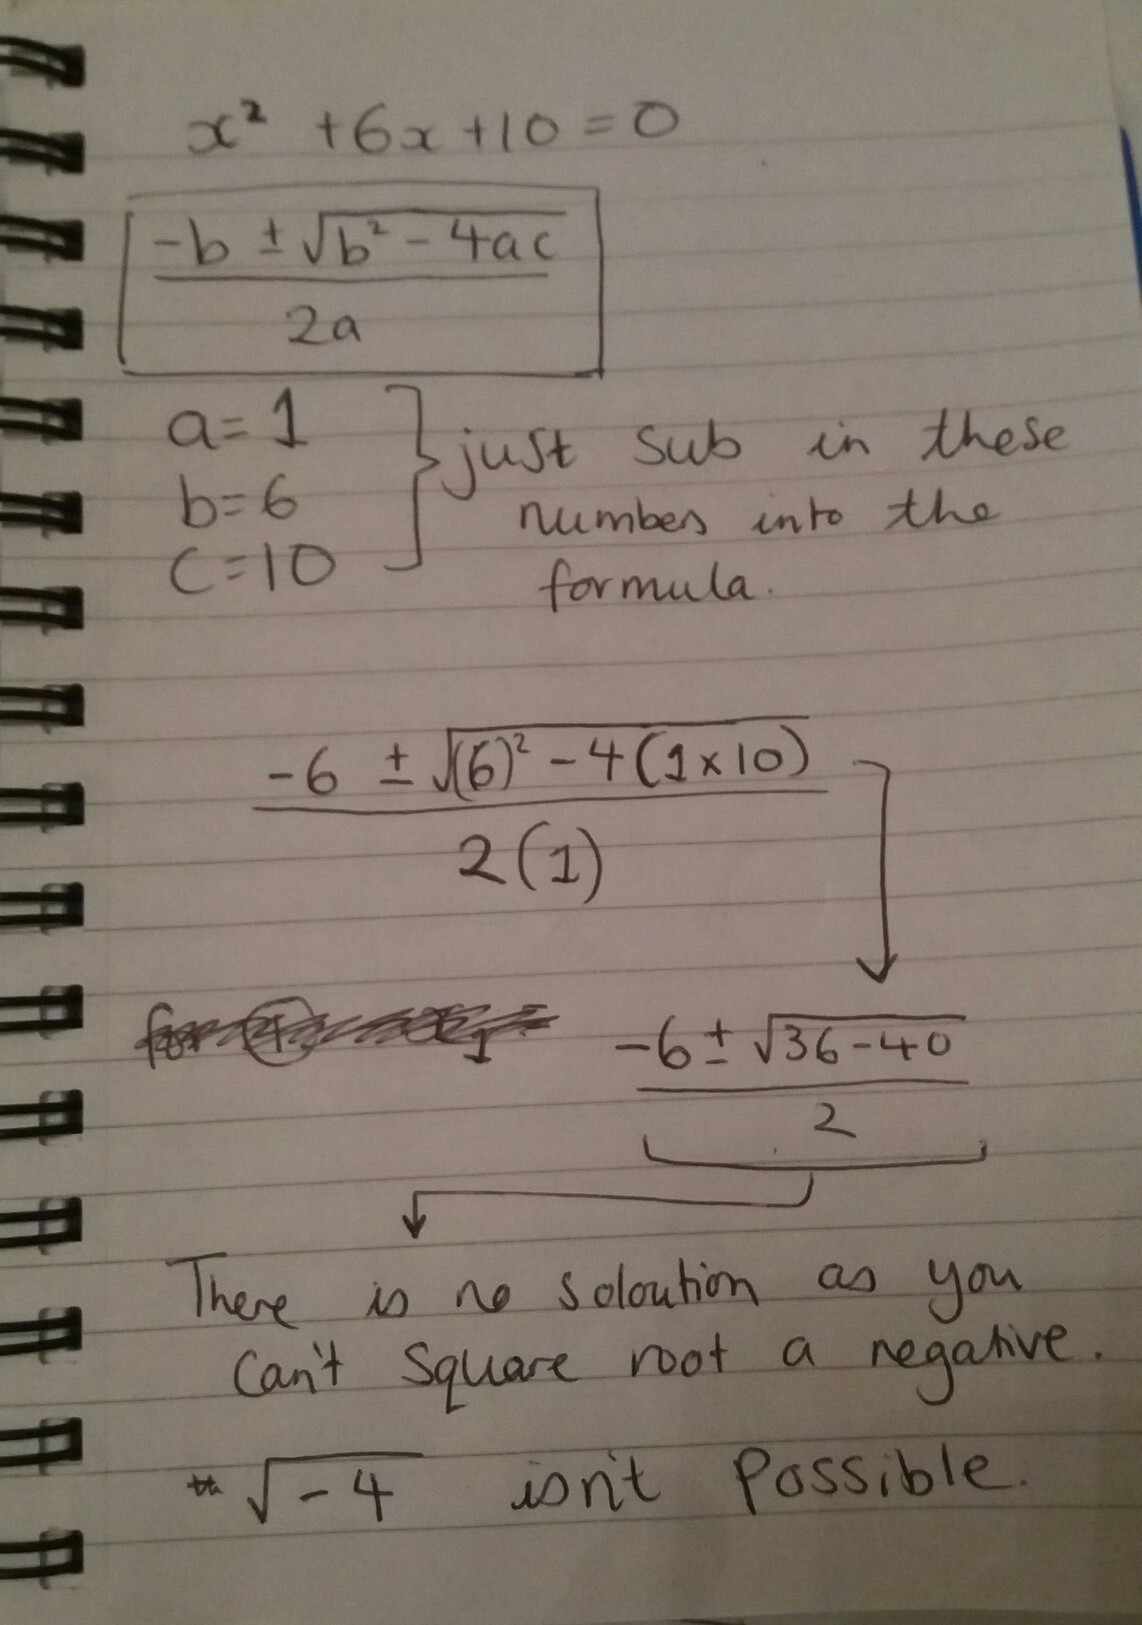 x² +6x+10=0
-b ± √b² - 4ac
2a
a=1
b=6
c=10
just sub in these
numbers into the
formula.
-6 ± √(6)² - 4(1×10)
2(1)
-6 ± √36-40
2
There is no soloution as you
can't square root a negative.
√-4 isn't possible.